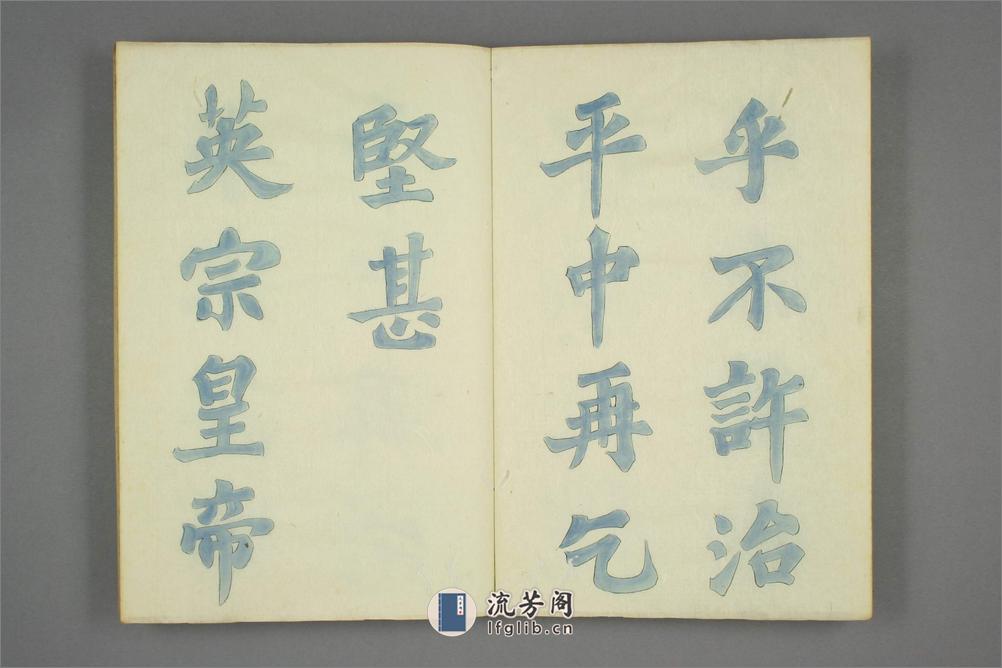 乎不許治
平中再乞
堅甚
英宗皇帝
流芳阁
lfglib.cn